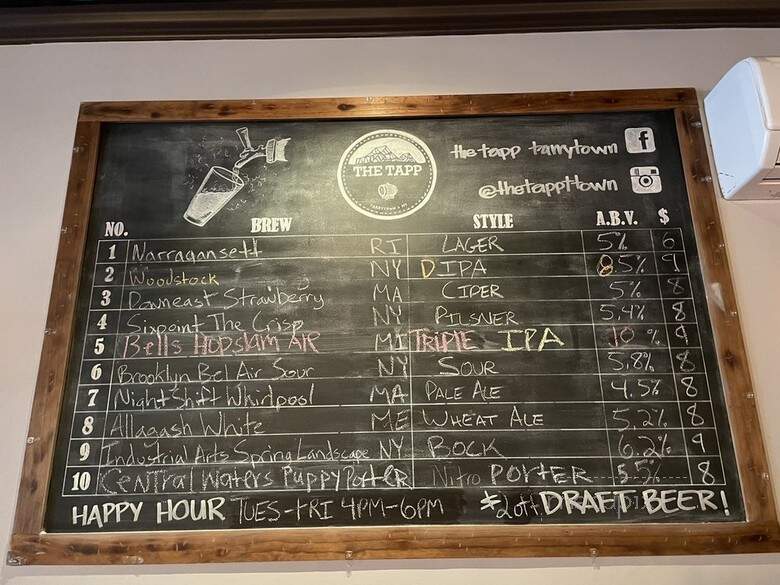 the tapp tarrytown f
THE TAPP
@thetappttown
NO. BREW STYLE A.B.V. $
1 Narragansett RI LAGER 5% 6
2 Woodstock NY DIPA 8.5% 9
3 Downeast Strawberry MA CIDER 5% 8
4 Sixpoint The Crisp NY PILSNER 5.4% 8
5 Bells Hopslam AIR MI TRIPLE IPA 10% 9
6 Brooklyn Bel Air Sour NY SOUR 5.8% 8
7 Night Shift Whirlpool MA PALE ALE 4.5% 8
8 Allagash White ME WHEAT ALE 5.2% 8
9 Industrial Arts Spring Landscape NY BOCK 6.2% 9
10 CENTral Waters Puppy PorteR Nitro PORTER 5.5% 8
HAPPY HOUR TUES-FRI 4PM-6PM *2 off DRAFT BEER!